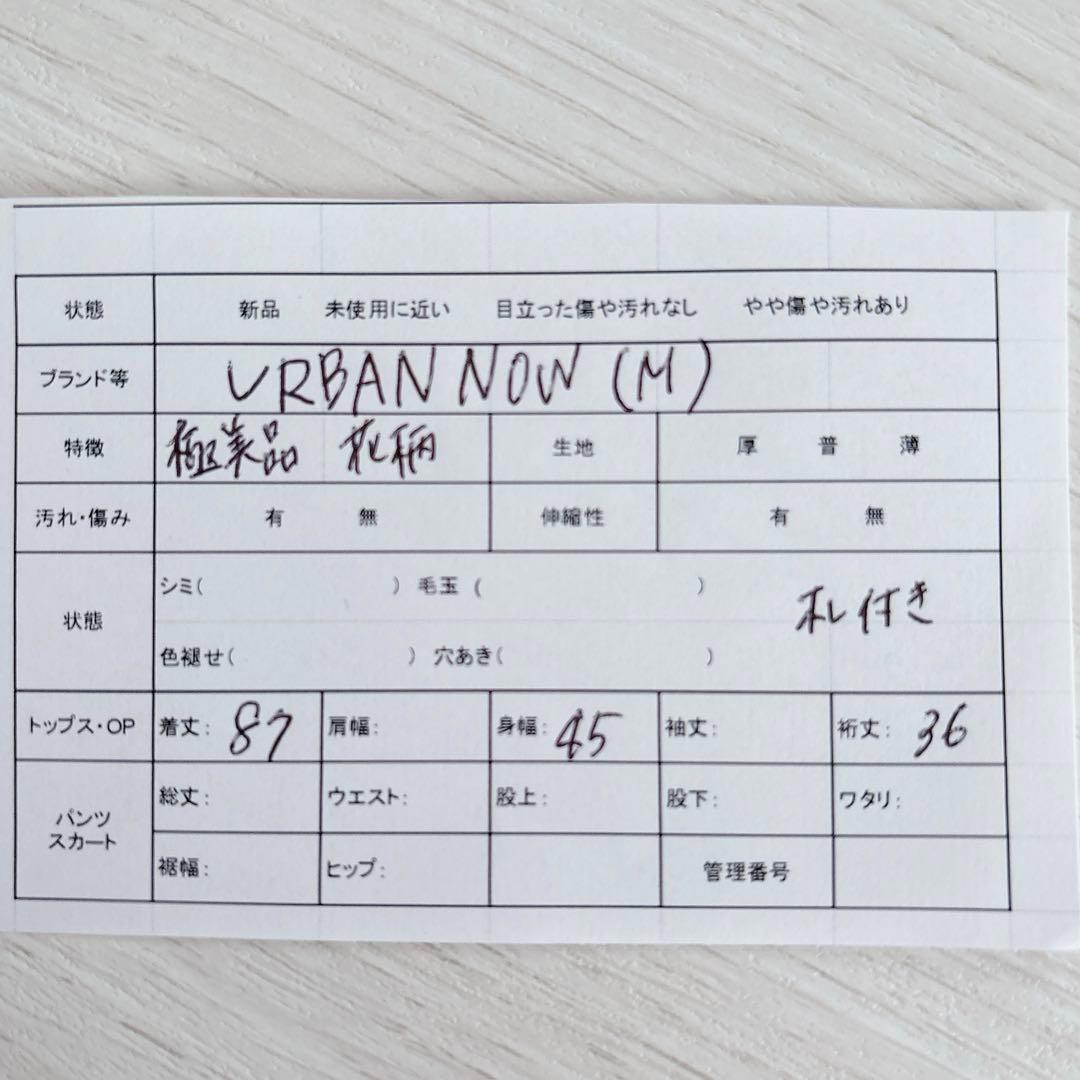 状態 新品 未使用に近い 目立った傷や汚れなし やや傷や汚れあり
ブランド等 URBAN NOW (M)
特徴 極美品 花柄 生地 厚 普 薄
汚れ・傷み 有 無 伸縮性 有 無
状態 シミ( ) 毛玉 ( )
色褪せ( ) 穴あき( )
札付き
トップス・OP 着丈: 87 肩幅: 身幅: 45 袖丈: 裄丈: 36
パンツ スカート 総丈: ウエスト: 股上: 股下: ワタリ:
裾幅: ヒップ: 管理番号